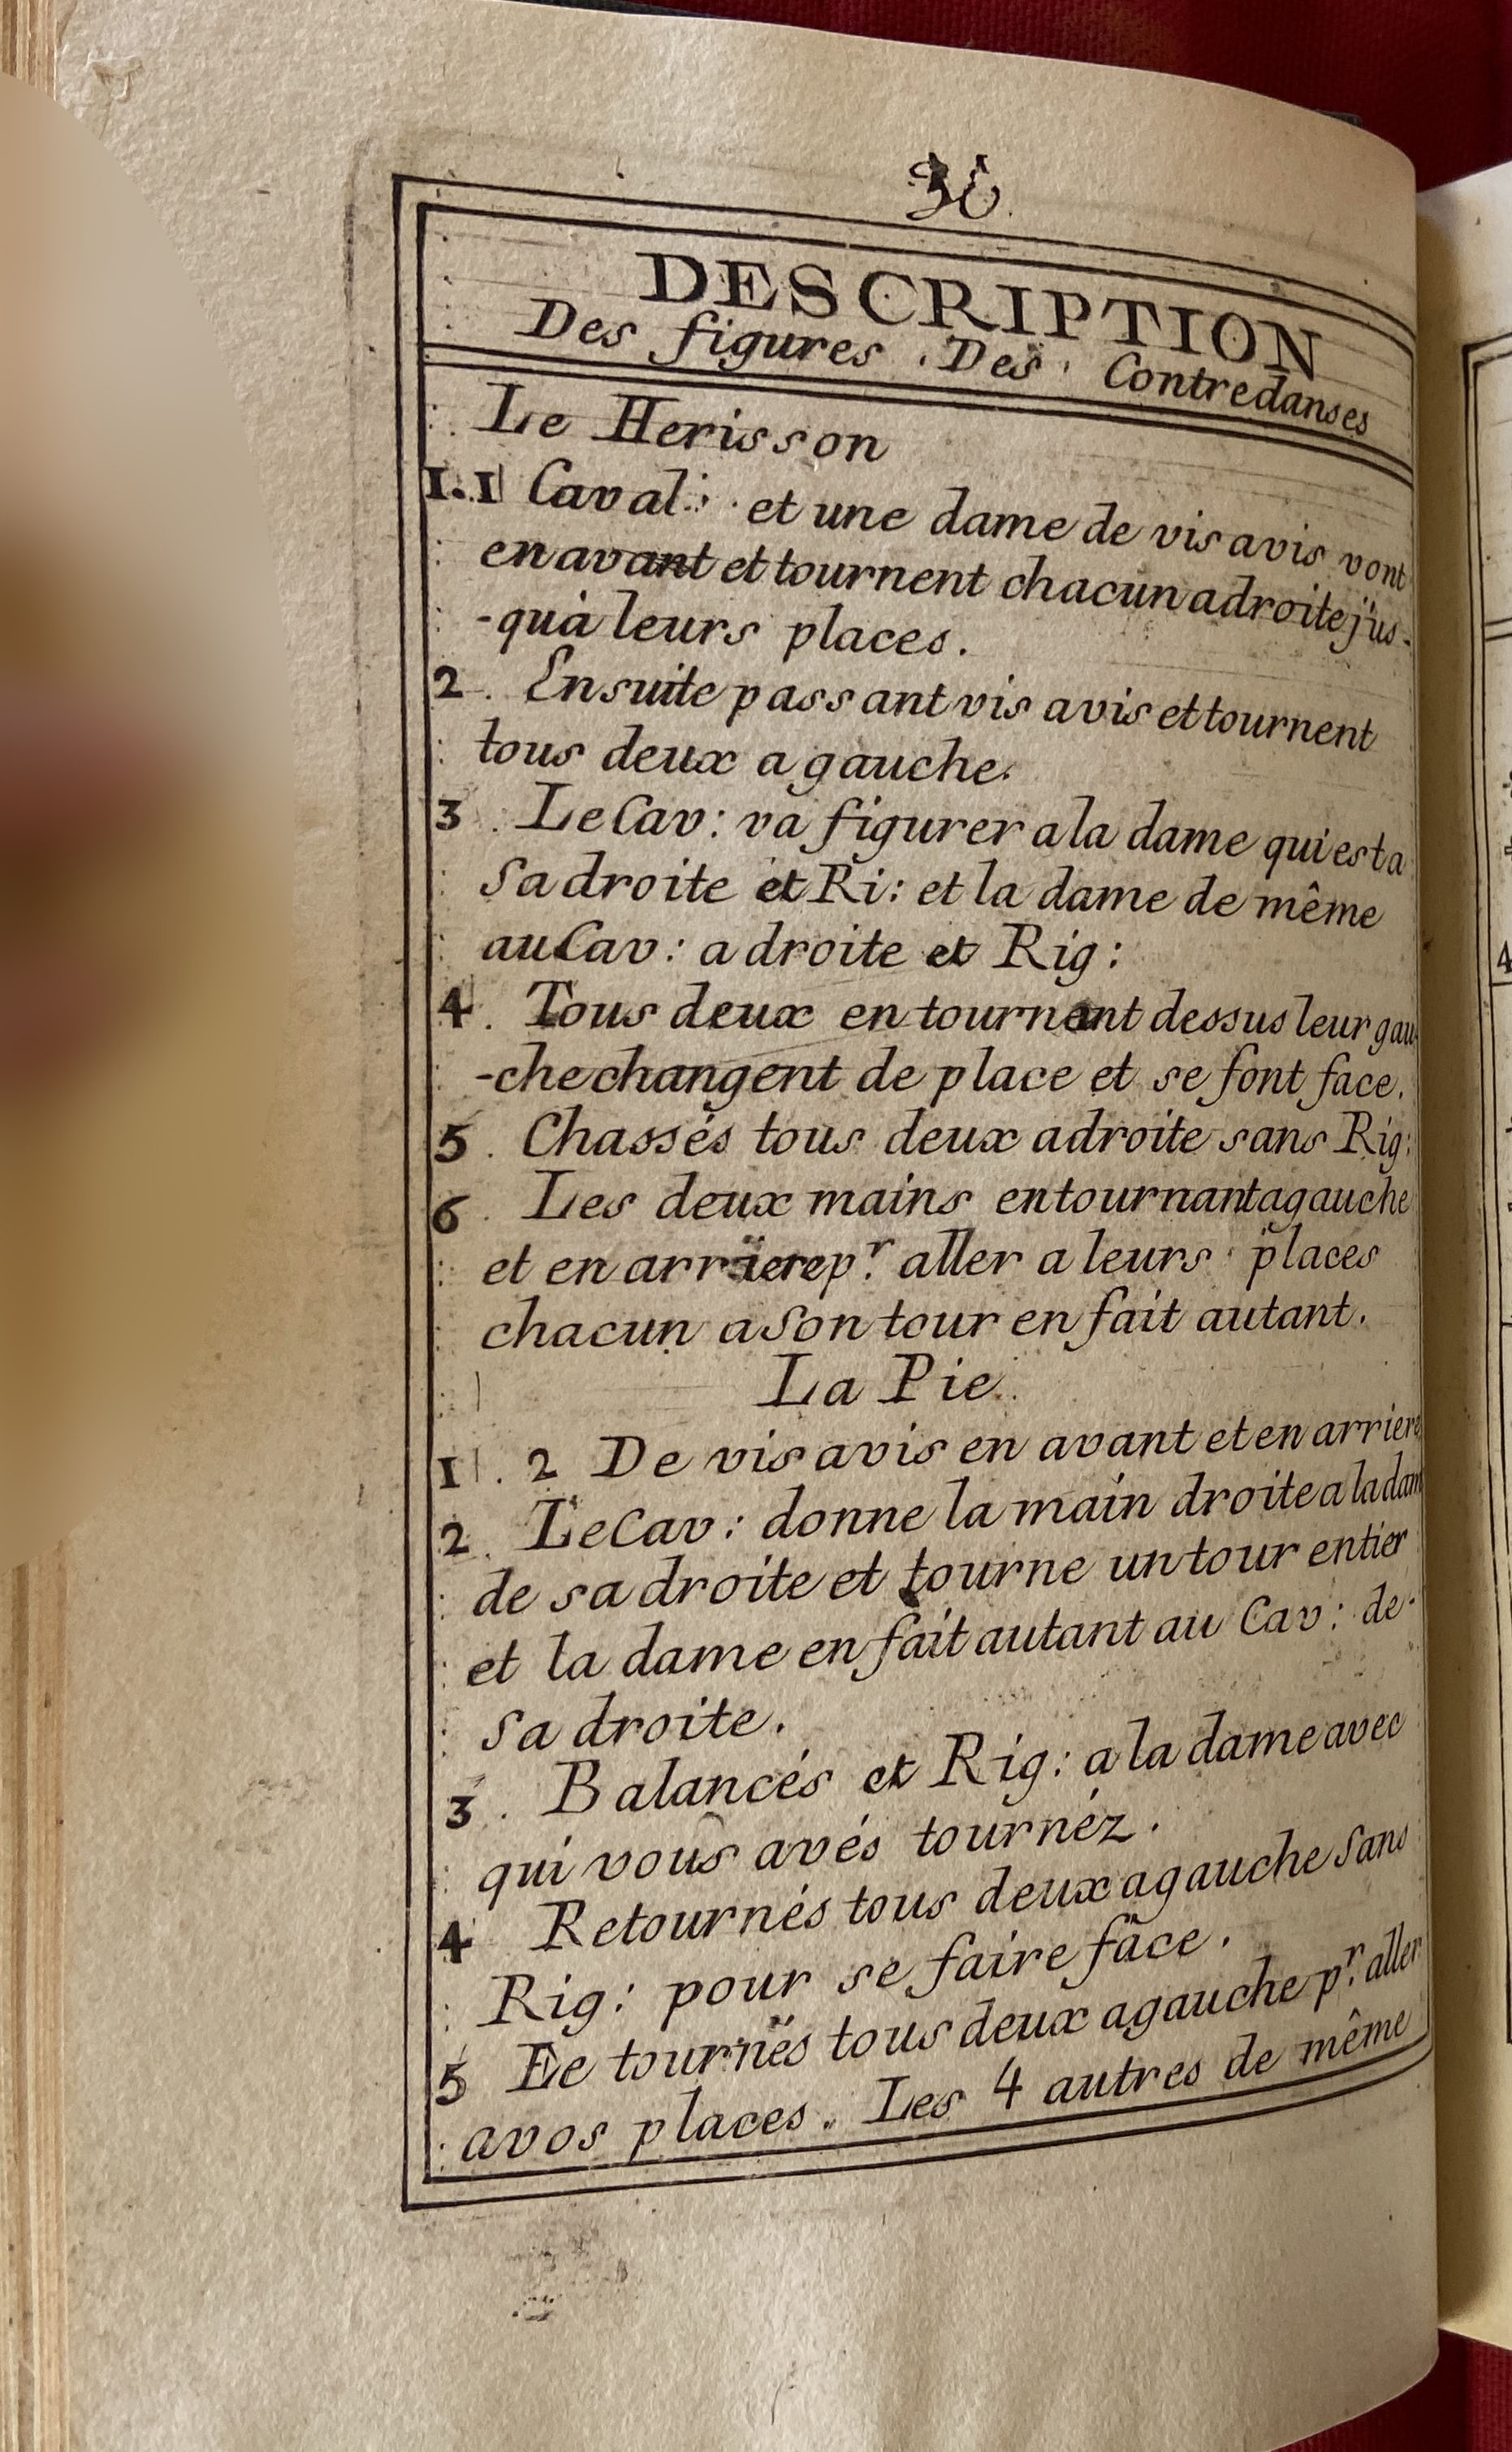 36
DESCRIPTION
Des figures Des Contredanses
Le Herisson
1. 1 Caval: et une dame de vis avis vont
en avant et tournent chacun a droite jus-
-quà leurs places.
2. Ensuite passant vis avis et tournent
tous deux a gauche.
3. Le Cav: va figurer a la dame qui est a
sa droite et Ri: et la dame de même
au Cav: a droite et Rig:
4. Tous deux en tournant dessus leur gau
-che changent de place et se font face.
5. Chassés tous deux a droite sans Rig:
6. Les deux mains en tournant a gauche
et en arriere pr. aller a leurs places
chacun a son tour en fait autant.
La Pie.
1. 2 De vis avis en avant et en arriere
2. Le Cav: donne la main droite a la dam
de sa droite et tourne un tour entier
et la dame en fait autant au Cav: de
sa droite.
3. Balancés et Rig: a la dame avec
qui vous avés tournéz.
4 Retournés tous deux a gauche sans
Rig: pour se faire face.
5 Ee tournés tous deux a gauche pr. aller
a vos places. Les 4 autres de même
4